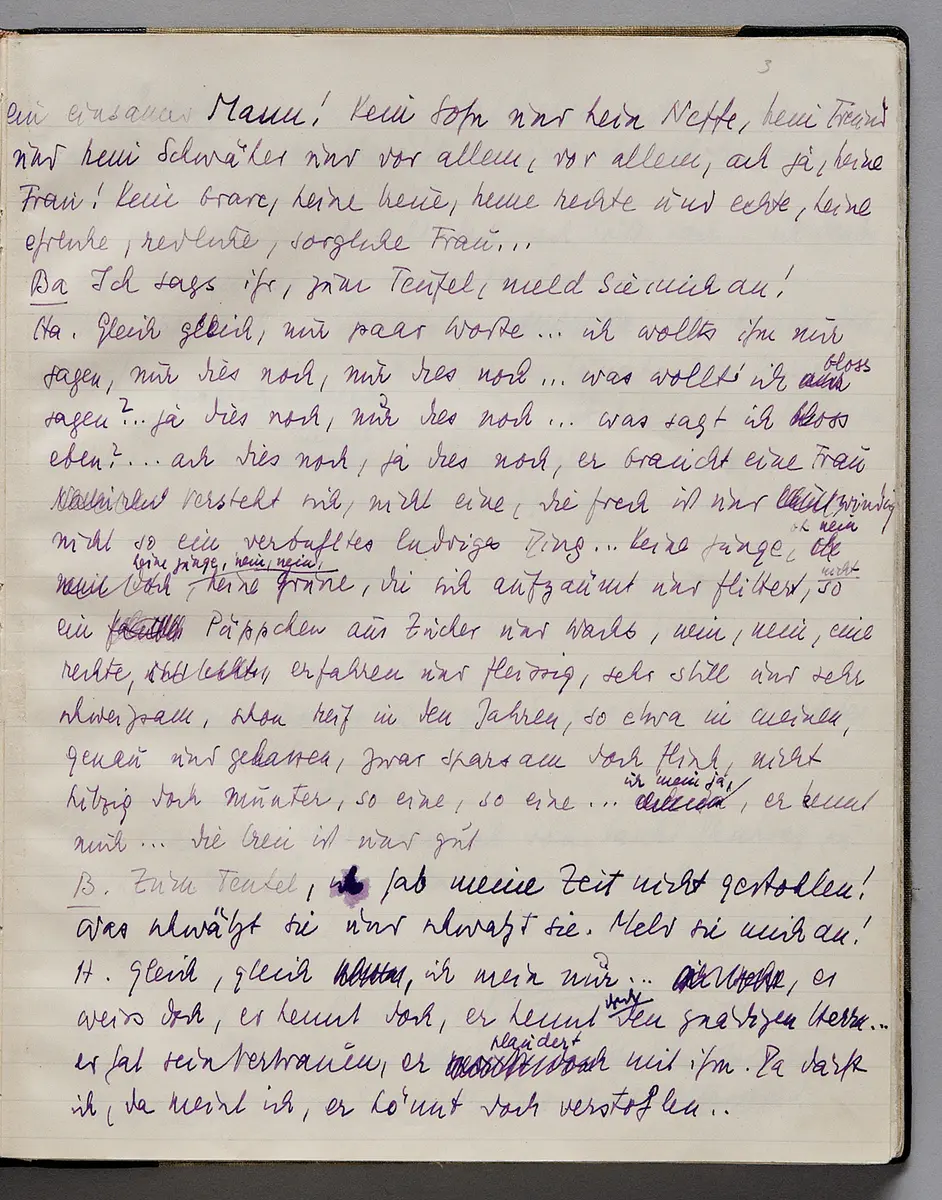 3
ein einsamer Mann! Kein Sohn und kein Neffe, kein Freund
und kein Schwäher und vor allem, vor allem, ach ja, keine
Frau! Kein brave, keine treue, keine rechte und echte, keine
ehrliche, redliche, sorgliche Frau...
Ba Ich sags ihr, zum Teufel, meld Sie mich an!
Ha. Gleich gleich, nur paar Worte... ich wollts ihm nur
bloss
sagen, nur dies noch, nur dies noch... was wollt' ich
sagen?.. ja dies noch, nur dies noch... was sagt ich bloss
eben?... ach dies noch, ja dies noch, er braucht eine Frau
versteht sich, nicht eine, die frech ist und windig
oh nein
nicht so ein verbuhltes ludriges Ding... Keine junge,
keine junge, nein, nein, nicht
keine Grüne, die sich aufzäumt und flittert, so
ein Püppchen aus Zucker und Wachs, nein, nein, eine
rechte, erfahren und fleissig, sehr still und sehr
schweigsam, schon reif in den Jahren, so etwa in meinen,
genau und gelassen, zwar sparsam doch flink, nicht
ich mein ja,
hitzig doch munter, so eine, so eine... er kennt
mich... die treu ist und gut
B. Zum Teufel, ich hab meine Zeit nicht gestohlen!
Was schwätzt sie und schwatzt sie. Meld sie mich an!
H. Gleich, gleich, ich mein nur... er
doch
weiss doch, er kennt doch, er kennt den gnädigen Herrn...
plaudert
er hat sein Vertrauen, er mit ihm. Da dacht
ich, da meint ich, er könnt doch verstohlen..